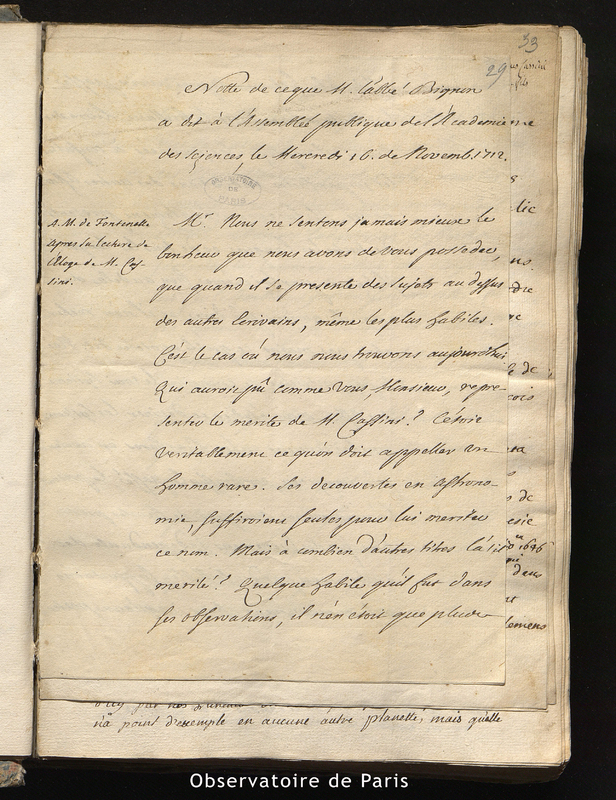 33
29
Notte de ce que M. l'abbé Bignon
a dit à l'Assemblée publique de l'Academie
des sciences, le Mercredi 16. de Novemb. 1712.
OBSERVATOIRE
DE
PARIS
A M. de Fontenelle
apres la lecture de
l'Eloge de M. Cas-
sini.
Mr. Nous ne sentons jamais mieux le
bonheur que nous avons de vous posseder,
que quand il se presente des sujets au dessus
des autres Ecrivains, même les plus habiles.
C'est le cas où nous nous trouvons aujourd'hui
Qui auroit pû comme vous, Monsieur, repre-
senter le merite de M. Cassini? C'étoit
veritablement ce qu'on doit appeller un
homme rare. Ses decouvertes en Astrono-
mie, suffiroient seules pour lui meriter
ce nom. Mais à combien d'autres titres l'a t'il
merité? Quelque habile qu'il fut dans
ses observations, il n'en étoit que plus
par nos
n'a point d'exemple en aucune autre planette, mais qu'elle
Observatoire de Paris